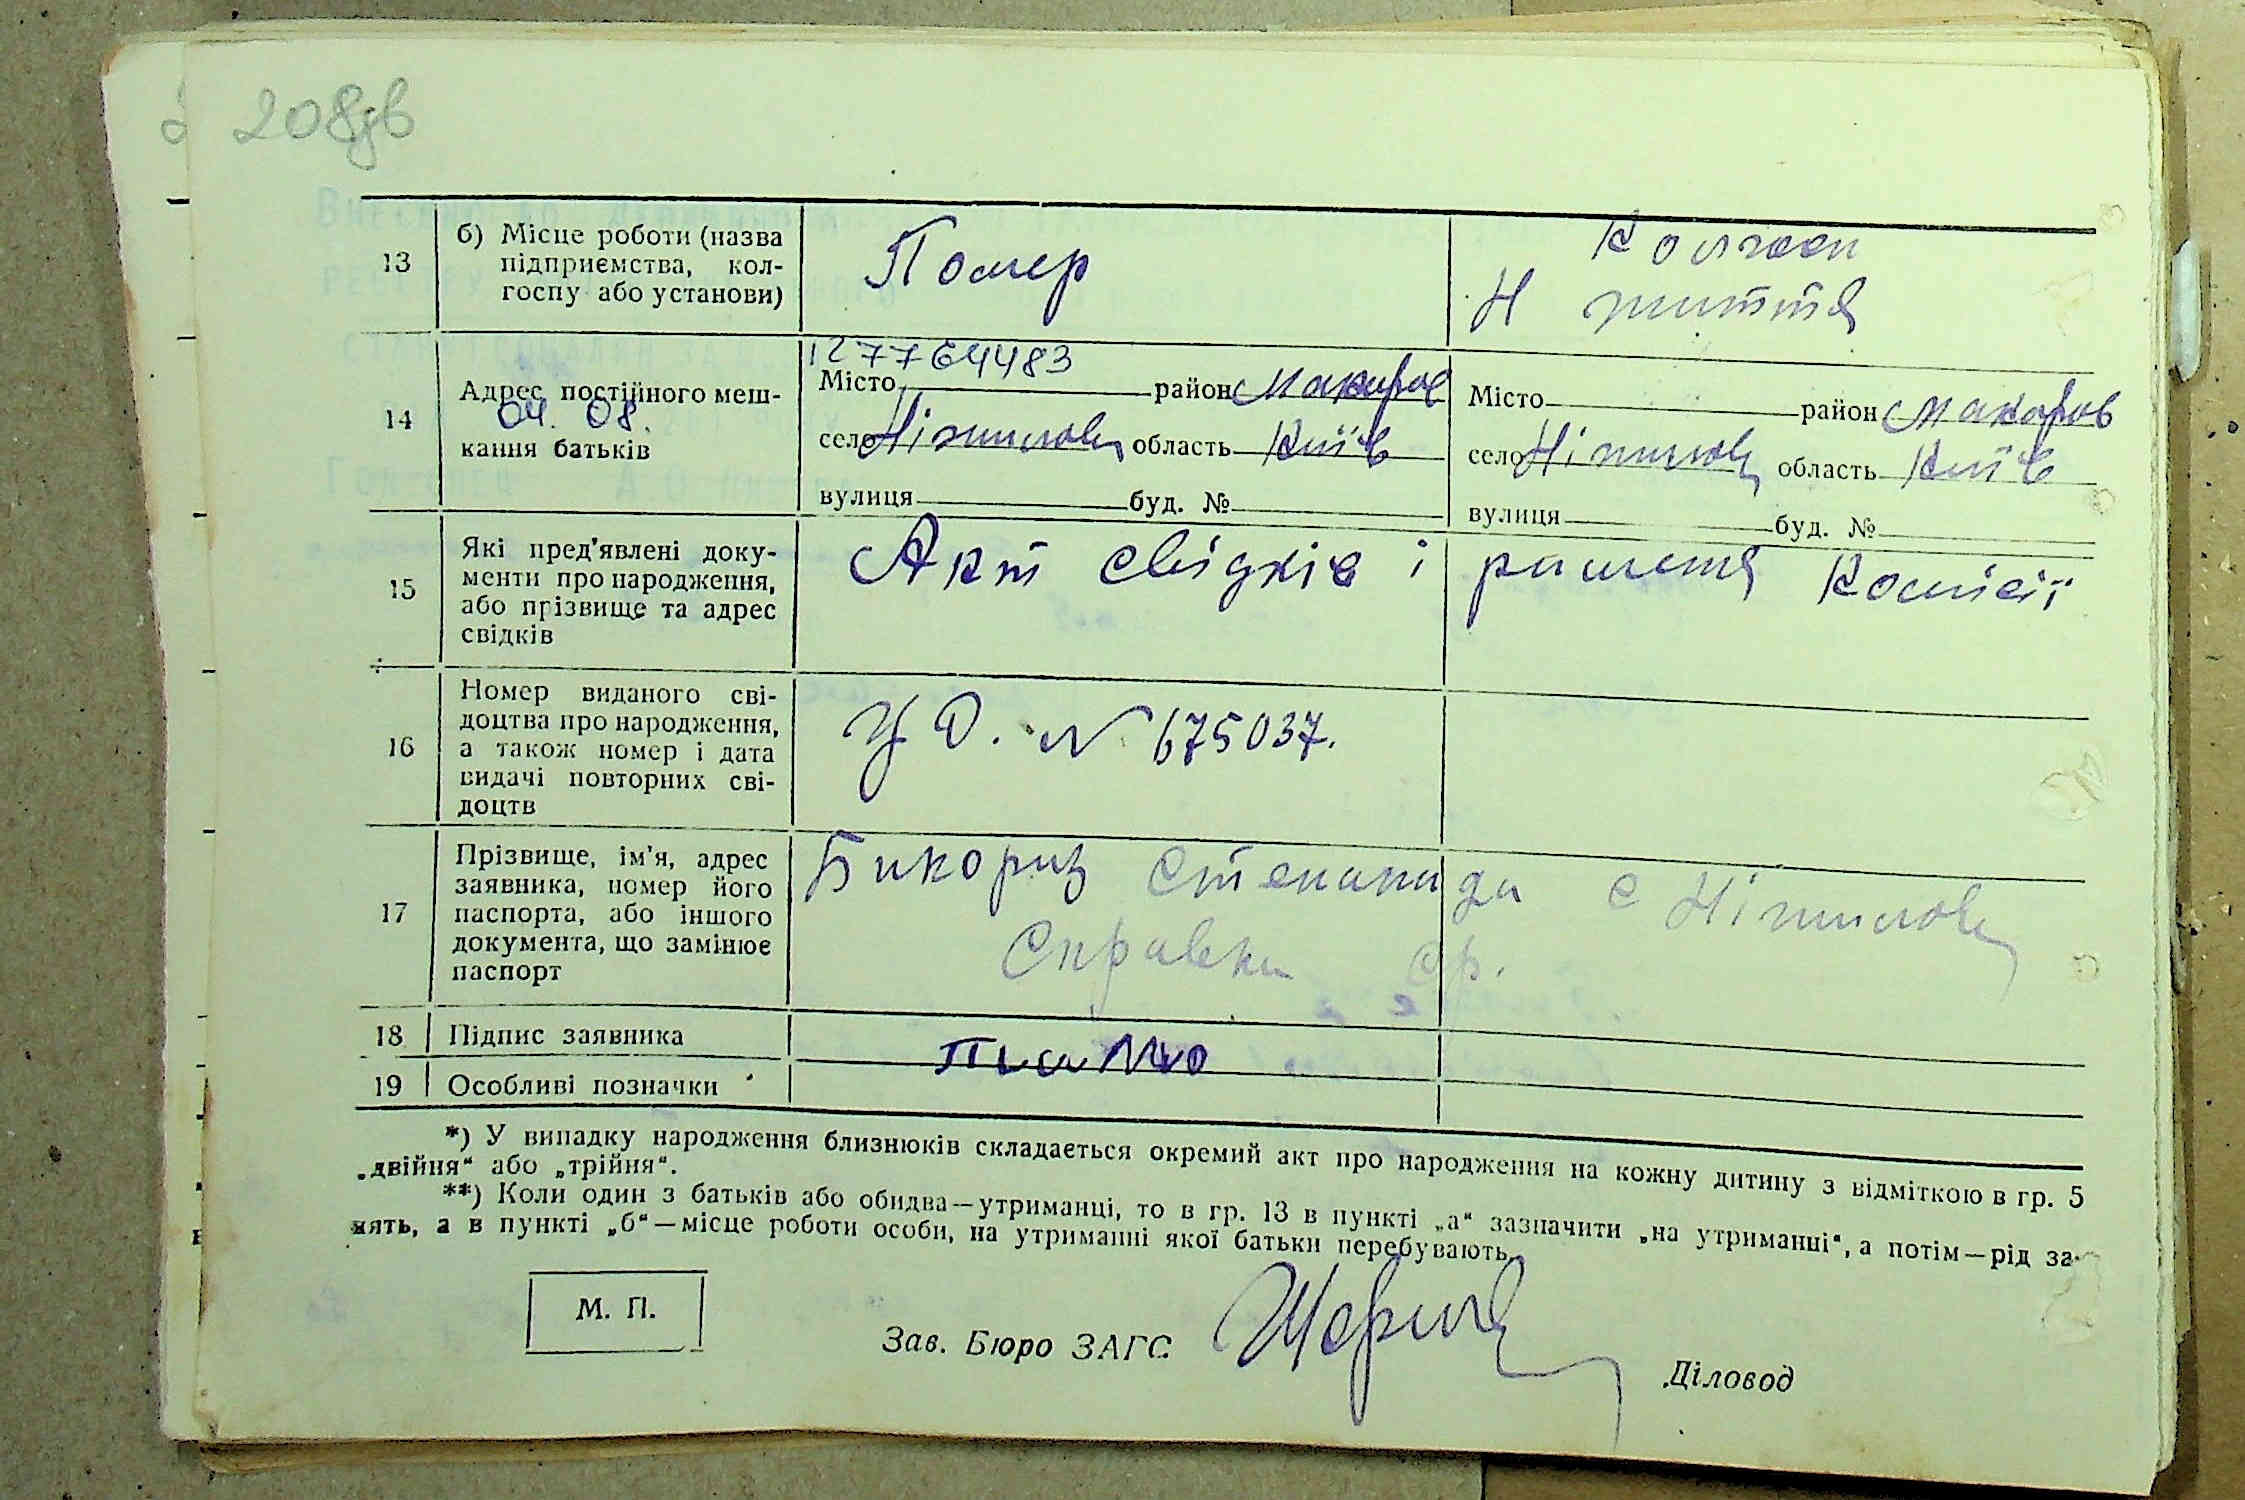 208зв
13
б) Місце роботи (назва
підприємства, кол-
госпу або установи)
Помер
Колгосп
Н життя
14
Адрес постійного меш-
04. 08.
кання батьків
127764483
Місто район Макаров
село Ніжиловч область Київ
вулиця буд. №
Місто район Макаров
село Ніжиловч область Київ
вулиця буд. №
15
Які пред'явлені доку-
менти про народження,
або прізвище та адрес
свідків
Акт свідків і рішення Комісії
16
Номер виданого сві-
доцтва про народження,
а також номер і дата
видачі повторних сві-
доцтв
N 675037.
17
Прізвище, ім'я, адрес
заявника, номер його
паспорта, або іншого
документа, що замінює
паспорт
Степанида с Ніжиловч
Справка
18
Підпис заявника
19
Особливі позначки
*) У випадку народження близнюків складається окремий акт про народження на кожну дитину з відміткою в гр. 5
„двійня“ або „трійня“.
**) Коли один з батьків або обидва—утриманці, то в гр. 13 в пункті „а“ зазначити „на утриманні“, а потім—рід за-
нять, а в пункті „б“—місце роботи особи, на утриманні якої батьки перебувають.
М. П.
Зав. Бюро ЗАГС
Діловод